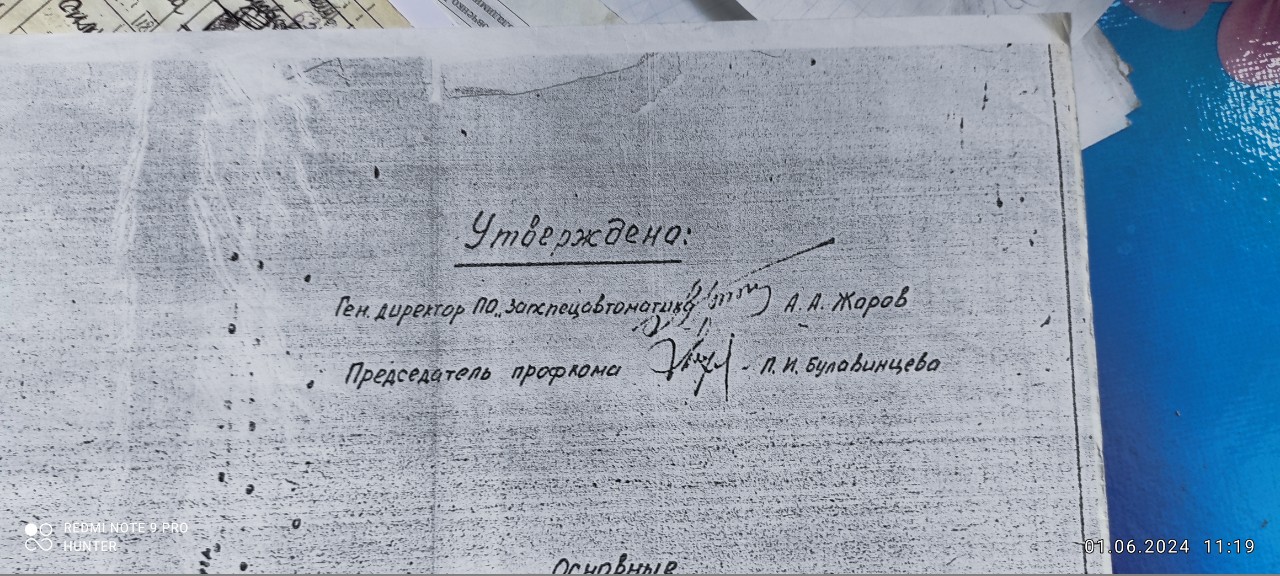 Утверждено:
Ген. директор ПО „Запспецавтоматика А. А. Жаров
Председатель профкома - П. И. Булавинцева
Основные
REDMI NOTE 9 PRO
HUNTER
01.06.2024 11:19